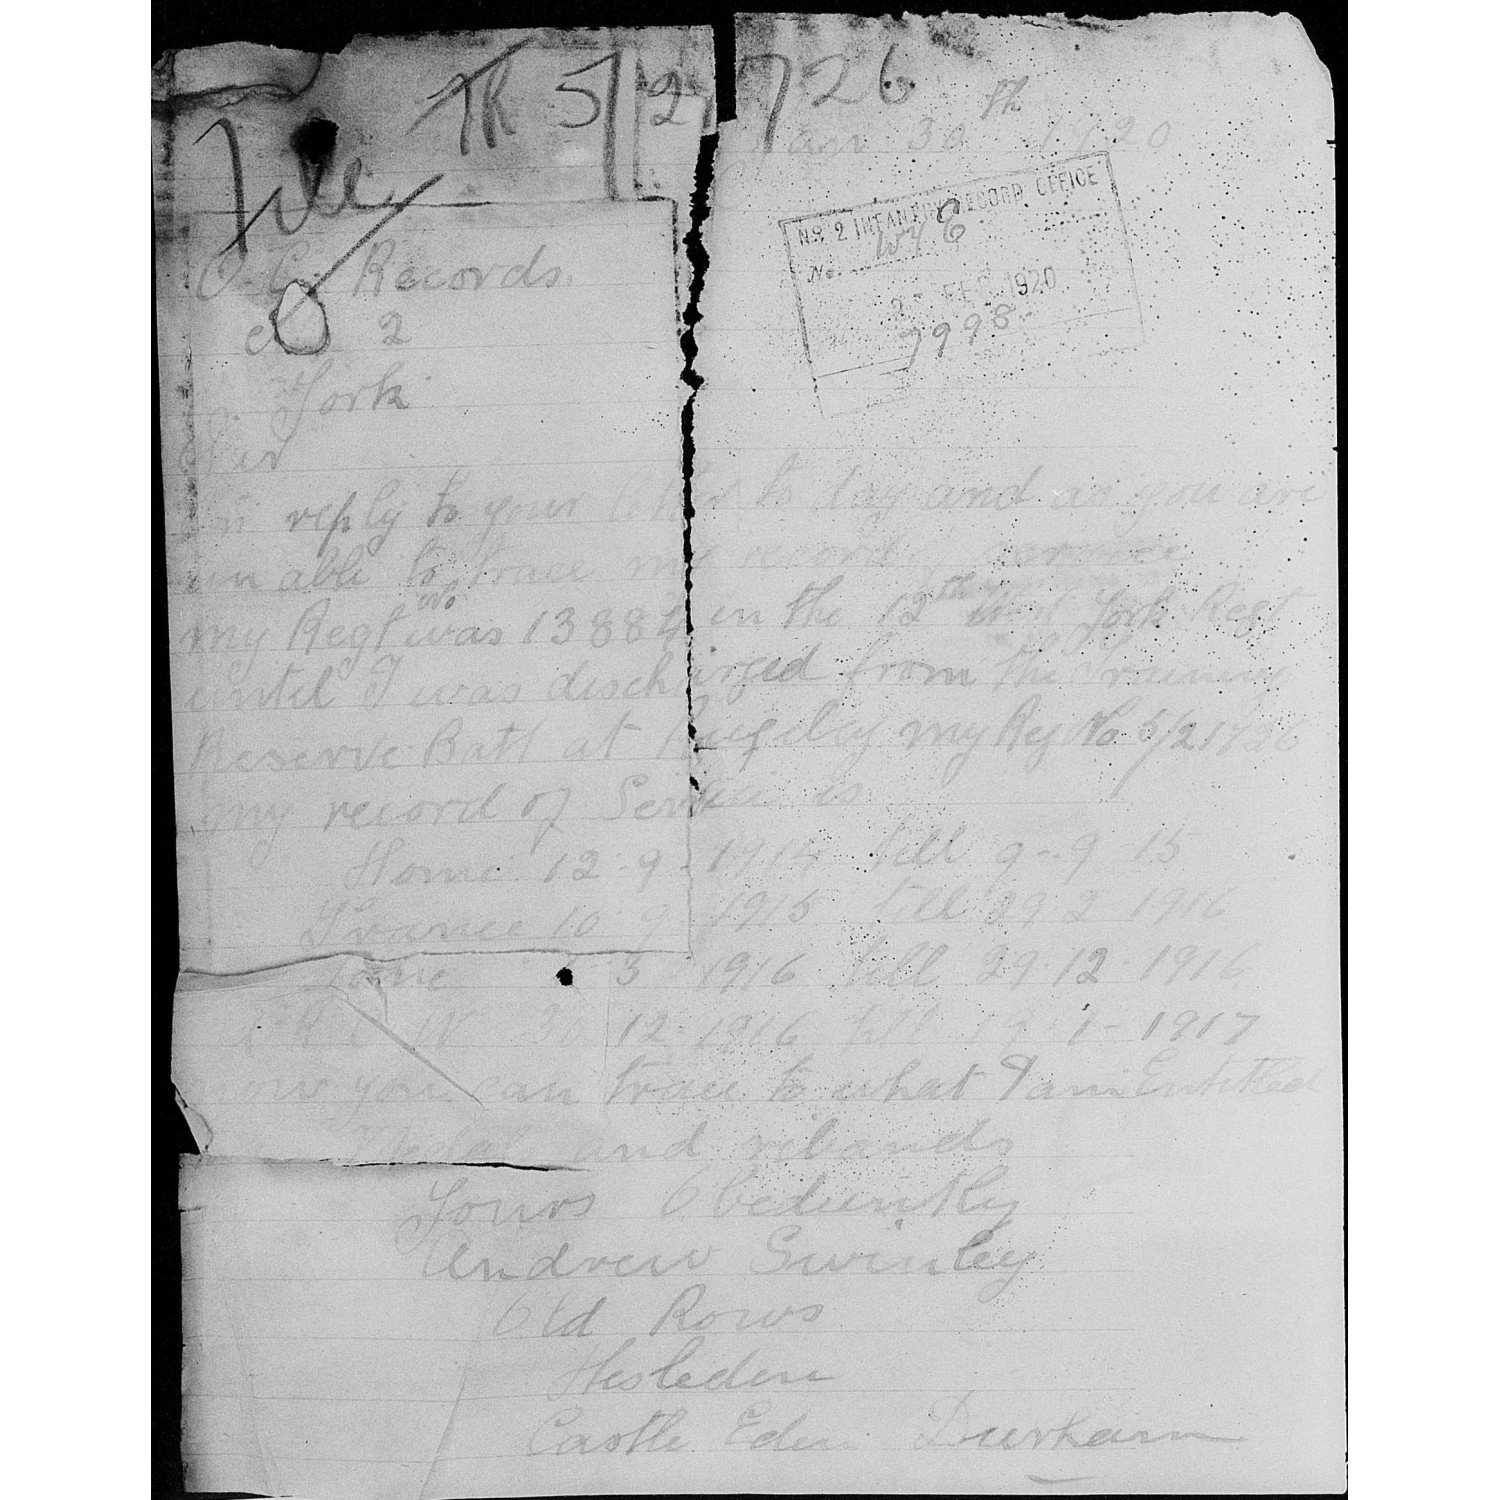 TR 5/21726
File
Jan 30th 1920
No 2 INFANTRY RECORD OFFICE
No. WY 6
2 FEB 1920
7998
O. C. Records.
2
York
Sir
In reply to your letter to day and as you are
un able to trace my record of service
my Regt No was 13884 in the 12th West York Regt
until I was discharged from the Training
Reserve Batt at Rugeley my Reg No 5/21726
my record of Service is
Home 12-9-1914 till 9-9-15
France 10 9 1915 till 29 2 1916
Home 3 1916 till 29-12-1916
30 12-1916 till 19 1-1917
now you can trace to what I am Entitled
Medals and ribands
Yours Obediently
Andrew Swinley
Old Rows
Hesleden
Castle Eden Durham